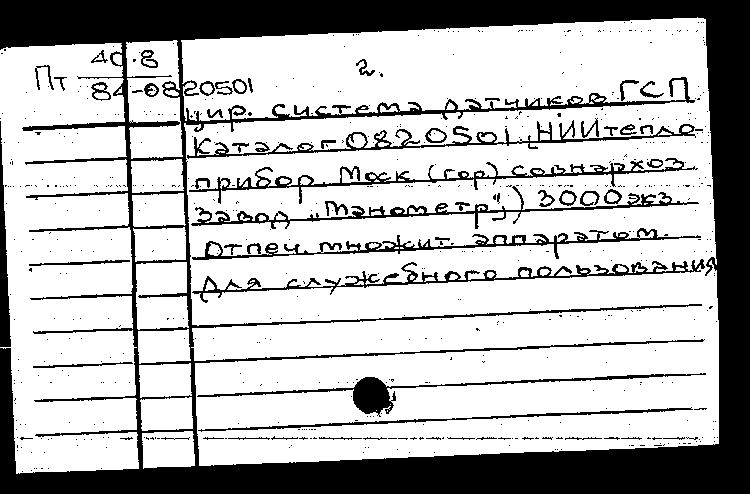 2.
Пт 40.8
84-0820501
цир. система датчиков ГСП
Каталог 0820501 [НИИтепло-
прибор. Моск (гор) совнархоз
завод „Манометр";) 3000экз.
Отпеч. множит. аппаратом.
Для служебного пользования